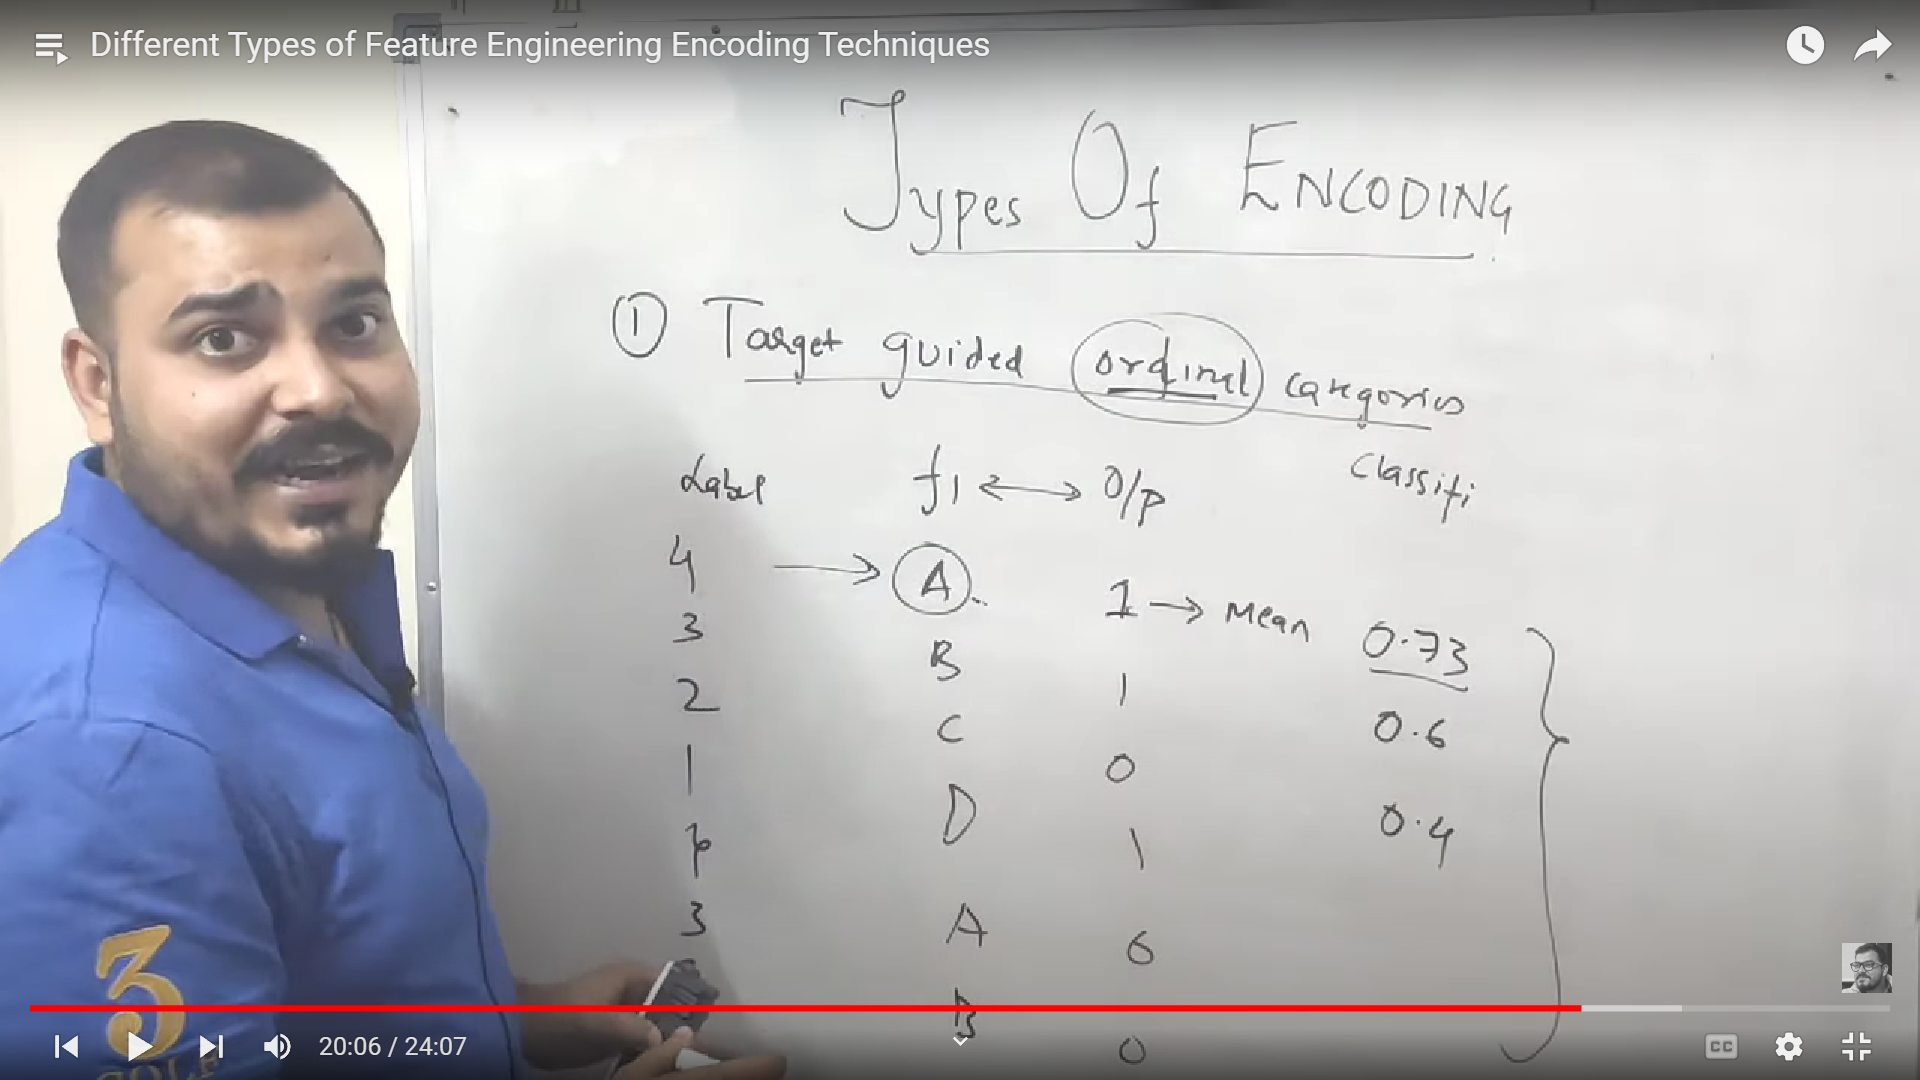 Different Types of Feature Engineering Encoding Techniques
Types Of ENCODING
1 Target guided ordinal categories
Classifi
Label f1 O/P
4 A 1 Mean 0.73
3 B 1 0.6
2 C 0 0.4
1 D 1
A
3 B 0
3
GOLF
20:06 / 24:07
CC